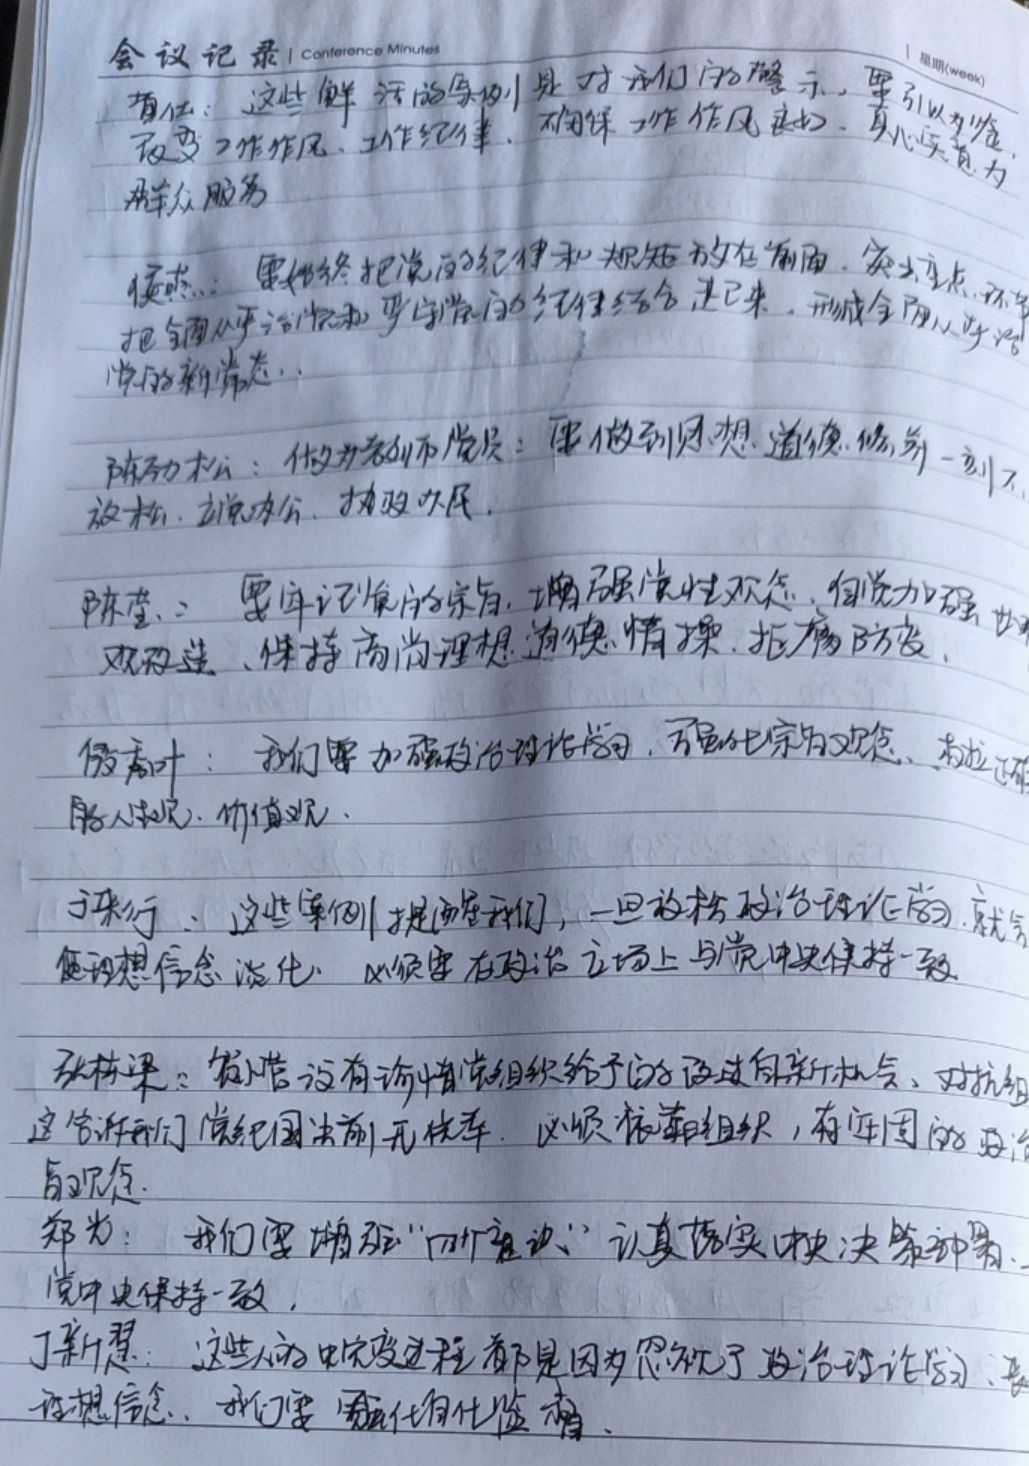 会议记录 | Conference Minutes | 星期(week)
：这些鲜活的案例是对我们的警示。要引以为鉴，
改变工作作风、工作纪律，确保工作作风良好，真心实意为
群众服务
：要始终把党的纪律和规矩放在前面，突出重点，
把全面从严治党和严守党的纪律结合进来，形成全面从严治
党的新常态..
陈劲松：做为党员：要做到思想道德修养一刻不
放松、立党为公、执政为民，
陈莹：要牢记党的宗旨，增强党性观念，自觉加强世界
观改造、保持高尚理想道德情操，拒腐防变，
：我们要加强政治理论学习，强化宗旨观念、树立正确
的人生观、价值观.
丁来行：这些案例提醒我们，一旦放松政治理论学习，就会
使理想信念淡化. 必须要在政治立场上与党中央保持一致
张栋梁：没有珍惜党组织给予的改过自新机会、对抗组
这告诉我们党纪国法前无侥幸. 必须依靠组织，有牢固的政治
与观念.
郑光：我们要增强“四个意识”认真落实中央决策部署、
党中央保持一致，
丁新慧：这些人的蜕变过程都是因为忽视了政治理论学习、
理想信念、我们要监督、